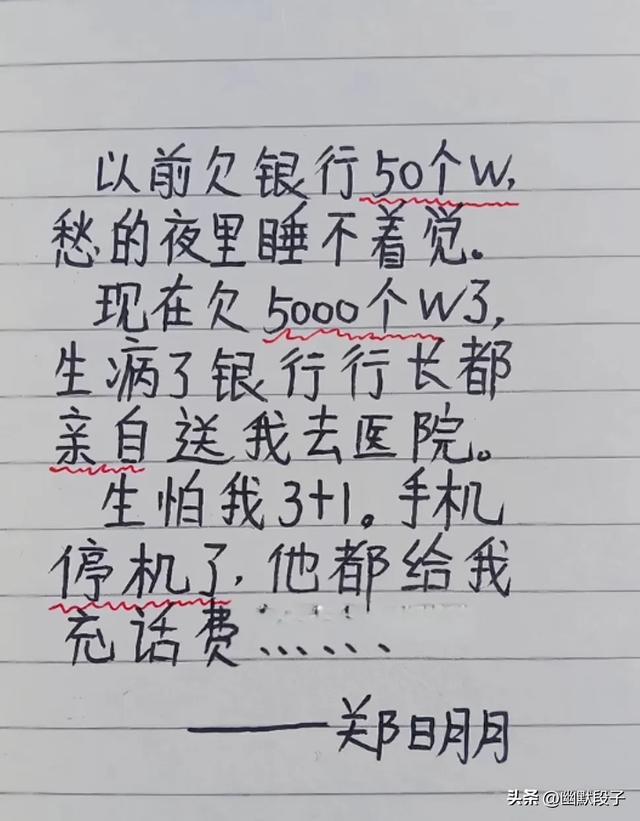 以前欠银行50个W,
愁的夜里睡不着觉。
现在欠5000个W3,
生病了银行行长都
亲自送我去医院。
生怕我3+1。手机
停机了,他都给我
充话费......
——郑明月
头条 @幽默段子